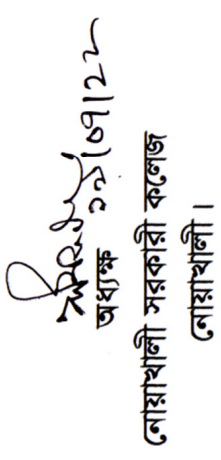 ২১/০৭/২২
অধ্যক্ষ
নোয়াখালী সরকারী কলেজ
নোয়াখালী।